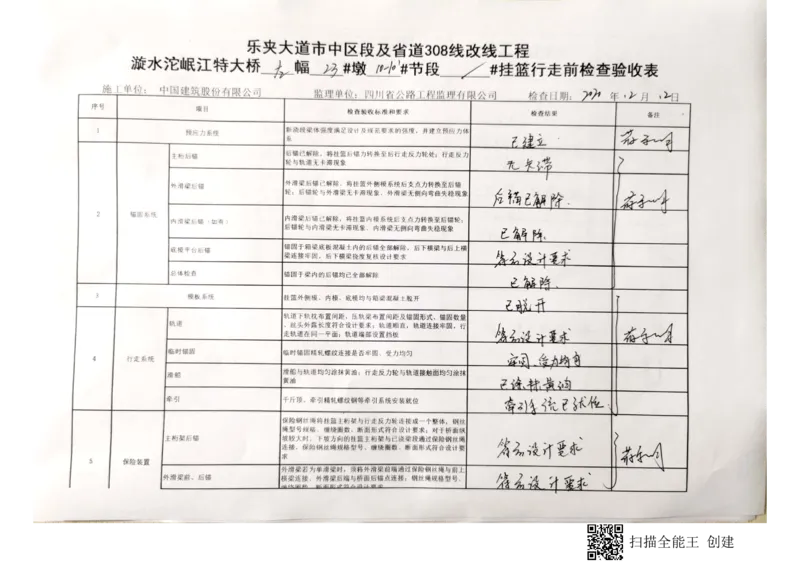 乐夹大道市中区段及省道308线改线工程
漩水沱岷江特大桥 左 幅 23 #墩 10-10' #节段 / #挂篮行走前检查验收表
施工单位： 中国建筑股份有限公司 监理单位：四川省公路工程监理有限公司 检查日期：2020 年 12 月 12 日
序号 项目 检查验收标准和要求 检查结果 备注
1 预应力系统 新浇段梁体强度满足设计及规范要求的强度，并建立预应力体系 已建立
2 锚固系统
主桁后锚 后锚已解除，将挂篮后锚力转换至后行走反力轮处；行走反力轮与轨道无卡滞现象 无卡滞
外滑梁后锚 外滑梁后锚已解除，将挂篮外侧模系统后支点力转换至后锚轮；后锚轮与外滑梁无卡滞现象、外滑梁无侧向弯曲失稳现象 后锚已解除
内滑梁后锚（如有） 内滑梁后锚已解除，将挂篮内模系统后支点力转换至后锚轮；后锚轮与内滑梁无卡滞现象、内滑梁无侧向弯曲失稳现象 已解除
底模平台后锚 锚固于箱梁底板混凝土内的后锚全部解除，后下横梁与后上横梁连接牢固，后下横梁挠度复核设计要求 符合设计要求
总体检查 锚固于梁内的后锚均已全部解除 已解除
3 模板系统 挂篮外侧模、内模、底模均与箱梁混凝土脱开 已脱开
4 行走系统
轨道 轨道下轨枕布置间距，压轨梁布置间距及锚固形式、锚固数量、丝头外露长度符合设计要求；轨道顺直，轨道连接牢固，行走轨道在同一平面；轨道端部设置挡板 符合设计要求
临时锚固 临时锚固精轧螺纹连接是否牢固、受力均匀 牢固、受力均匀
滑船 滑船与轨道均匀涂抹黄油；行走反力轮与轨道接触面均匀涂抹黄油 已涂抹黄油
牵引 千斤顶、牵引精轧螺纹钢等牵引系统安装就位 牵引系统已就位
5 保险装置
主桁架后锚 保险钢丝绳将挂篮主桁架与行走反力轮连接成一个整体，钢丝绳型号规格、缠绕圈数、断面形式符合设计要求；对于桥面纵坡较大时，下坡方向的挂篮主桁架与已浇梁段通过保险钢丝绳连接，保险钢丝绳规格型号、缠绕圈数、断面形式符合设计要求 符合设计要求
外滑梁前、后锚 外滑梁若为单滑梁时，须将外滑梁前端通过保险钢丝绳与前上横梁连接，外滑梁后端与桥面后锚点连接；钢丝绳规格型号、缠绕圈数、断面形式符合设计要求 符合设计要求
扫描全能王 创建